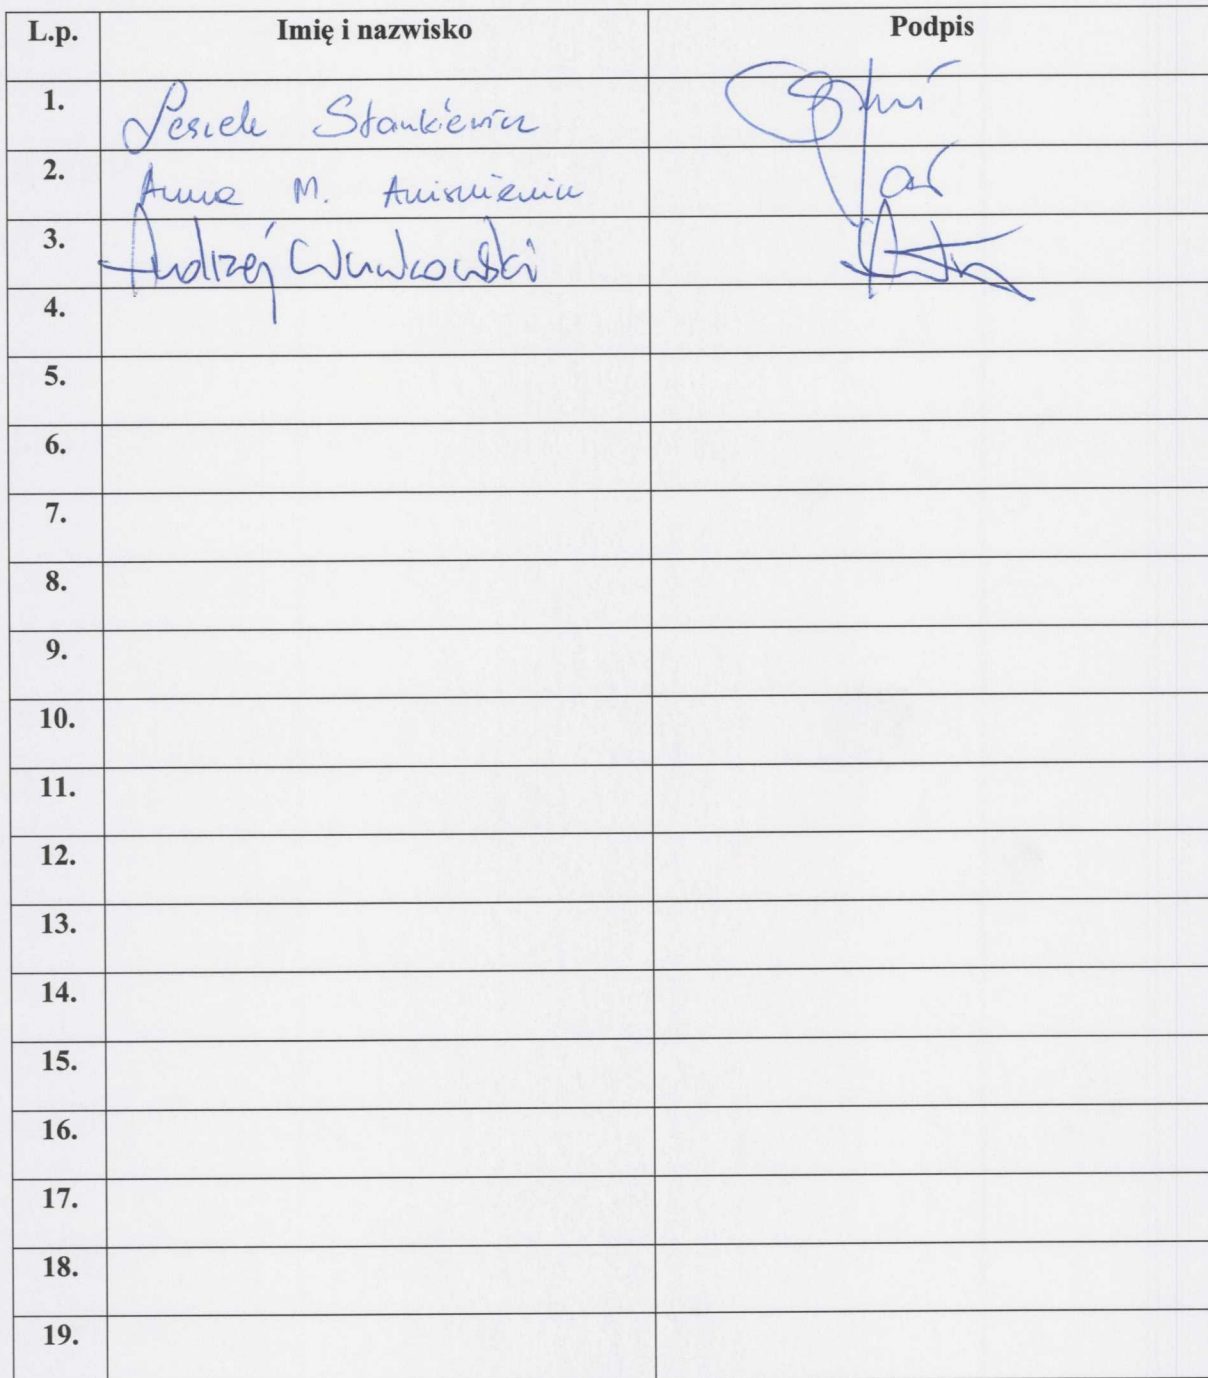 L.p. Imię i nazwisko Podpis
1. Leszek Stankiewicz
2. Anna M. Anisiewicz
3. Andrzej
4.
5.
6.
7.
8.
9.
10.
11.
12.
13.
14.
15.
16.
17.
18.
19.